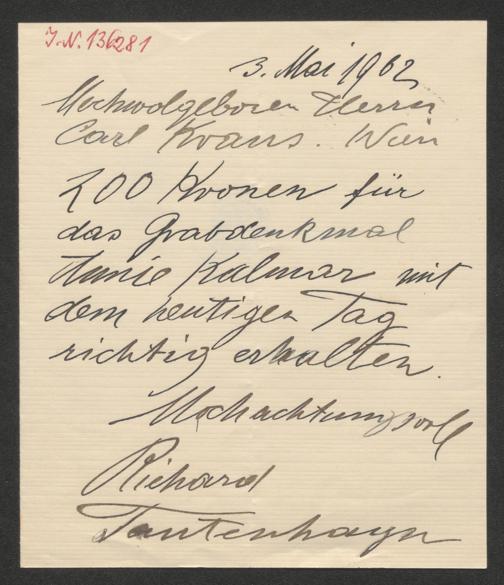 J.N. 136281
3. Mai 1902
Hochwolgeboren Herrn
Carl Kraus. Wien
200 Kronen für
das Grabdenkmal
Annie Kalmar mit
dem heutigen Tag
richtig erhalten.
Hochachtungsvoll
Richard
Tautenhayn